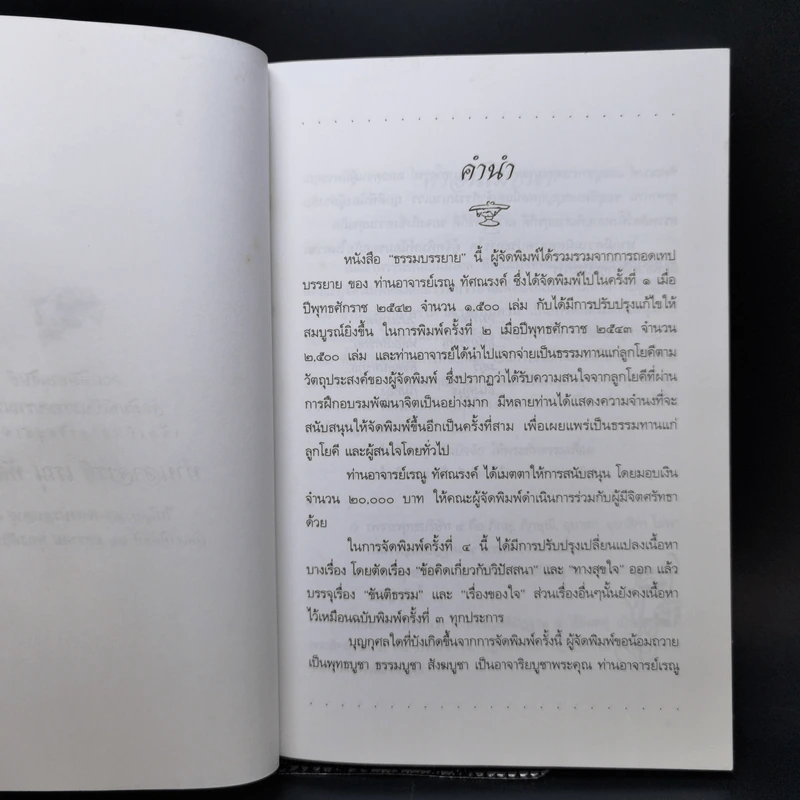 คำนำ
หนังสือ "ธรรมบรรยาย" นี้ ผู้จัดพิมพ์ได้รวมรวมจากการถอดเทป
บรรยาย ของ ท่านอาจารย์เรณู ทัศณรงค์ ซึ่งได้จัดพิมพ์ไปในครั้งที่ ๑ เมื่อ
ปีพุทธศักราช ๒๕๔๒ จำนวน ๑,๕๐๐ เล่ม กับได้มีการปรับปรุงแก้ไขให้
สมบูรณ์ยิ่งขึ้น ในการพิมพ์ครั้งที่ ๒ เมื่อปีพุทธศักราช ๒๕๔๓ จำนวน
๒,๕๐๐ เล่ม และท่านอาจารย์ได้นำไปแจกจ่ายเป็นธรรมทานแก่ลูกโยคีตาม
วัตถุประสงค์ของผู้จัดพิมพ์ ซึ่งปรากฏว่าได้รับความสนใจจากลูกโยคีที่ผ่าน
การฝึกอบรมพัฒนาจิตเป็นอย่างมาก มีหลายท่านได้แสดงความจำนงที่จะ
สนับสนุนให้จัดพิมพ์ขึ้นอีกเป็นครั้งที่สาม เพื่อเผยแพร่เป็นธรรมทานแก่
ลูกโยคี และผู้สนใจโดยทั่วไป
ท่านอาจารย์เรณู ทัศณรงค์ ได้เมตตาให้การสนับสนุน โดยมอบเงิน
จำนวน ๒๐,๐๐๐ บาท ให้คณะผู้จัดพิมพ์ดำเนินการร่วมกับผู้มีจิตศรัทธา
ด้วย
ในการจัดพิมพ์ครั้งที่ ๔ นี้ ได้มีการปรับปรุงเปลี่ยนแปลงเนื้อหา
บางเรื่อง โดยตัดเรื่อง "ข้อคิดเกี่ยวกับวิปัสสนา" และ "ทางสุขใจ" ออก แล้ว
บรรจุเรื่อง "ขันติธรรม" และ "เรื่องของใจ" ส่วนเรื่องอื่นๆนั้นยังคงเนื้อหา
ไว้เหมือนฉบับพิมพ์ครั้งที่ ๓ ทุกประการ
บุญกุศลใดที่บังเกิดขึ้นจากการจัดพิมพ์ครั้งนี้ ผู้จัดพิมพ์ขอน้อมถวาย
เป็นพุทธบูชา ธรรมบูชา สังฆบูชา เป็นอาจาริยบูชาพระคุณ ท่านอาจารย์เรณู